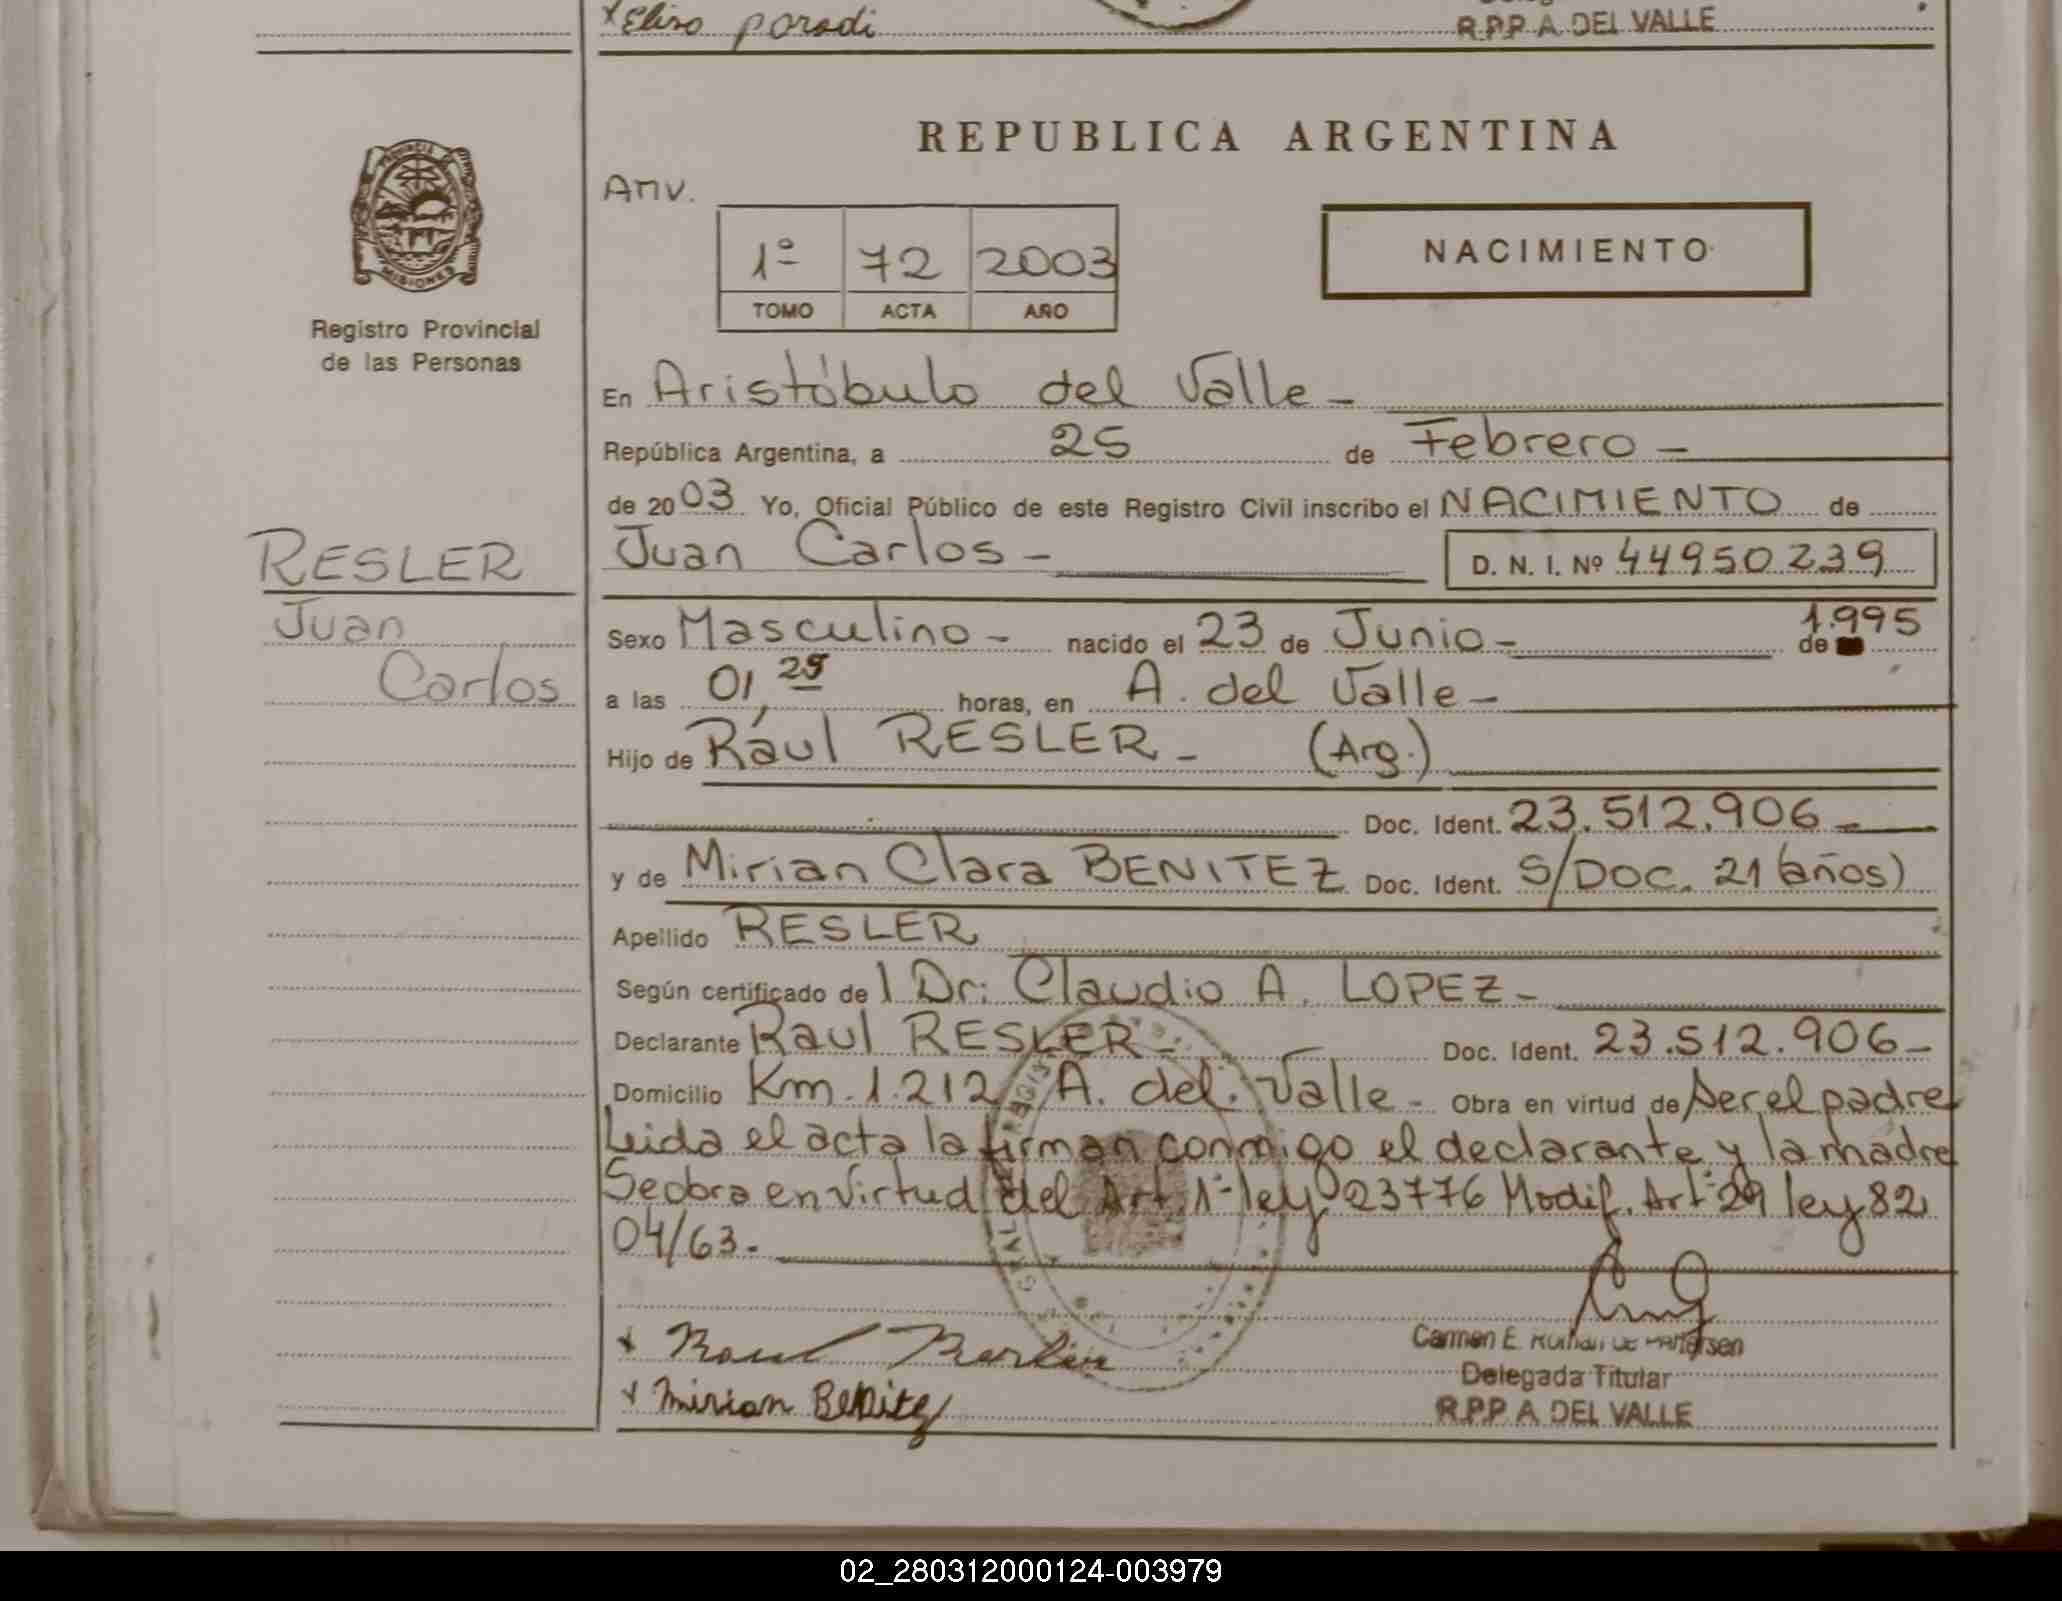 x Eliro poradi
R.P.P. A. DEL VALLE
PROVINCIA DE
MISIONES
Registro Provincial
de las Personas
RESLER
Juan
Carlos
REPUBLICA ARGENTINA
Amv.
1º 72 2003
TOMO ACTA AÑO
NACIMIENTO
En Aristóbulo del Valle -
República Argentina, a 25 de Febrero -
de 2003 Yo, Oficial Público de este Registro Civil inscribo el NACIMIENTO de
Juan Carlos - D. N. I. Nº 44950239
Sexo Masculino - nacido el 23 de Junio - de 1.995
a las 01,25 horas, en A. del Valle -
Hijo de Raúl RESLER - (Arg.)
Doc. Ident. 23.512.906 -
y de Mirian Clara BENITEZ Doc. Ident. S/DOC. 21 (años)
Apellido RESLER
Según certificado del Dr: Claudio A. LOPEZ -
Declarante Raul RESLER - Doc. Ident. 23.512.906 -
Domicilio Km. 1.212 A. del Valle - Obra en virtud de ser el padre
Leida el acta la firman conmigo el declarante y la madre
Se obra en virtud del Art. 1º ley 23776 Modif. Art º 29 ley 82
04/63.
x Raul
x Mirian Benitez
Carmen E.
Delegada Titular
R.P.P. A. DEL VALLE
02_280312000124-003979